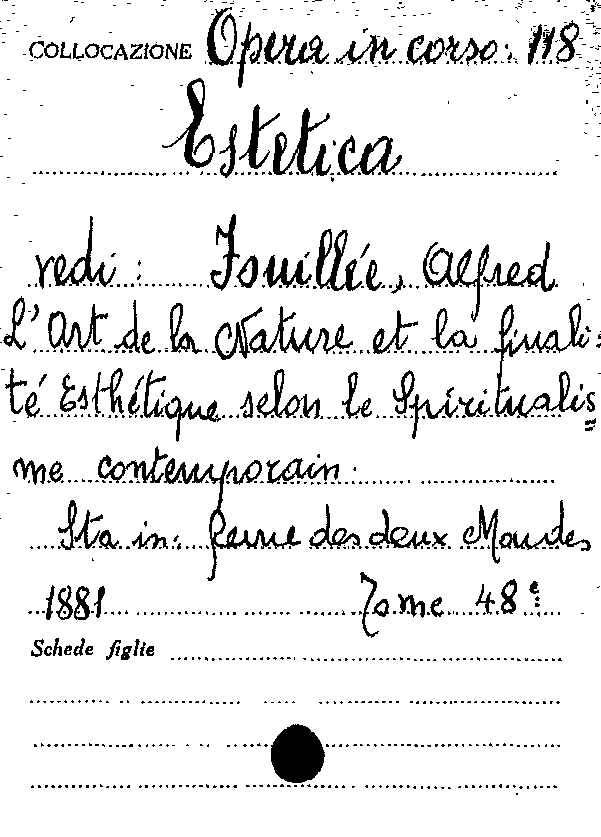 COLLOCAZIONE Opera in corso: 118
Estetica
vedi: Fouillée, Alfred
L'Art de la Nature et la finali=
té Esthétique selon le Spiritualis=
me contemporain.
Sta in: Revue des deux Mondes
1881 Tome 48e
Schede figlie